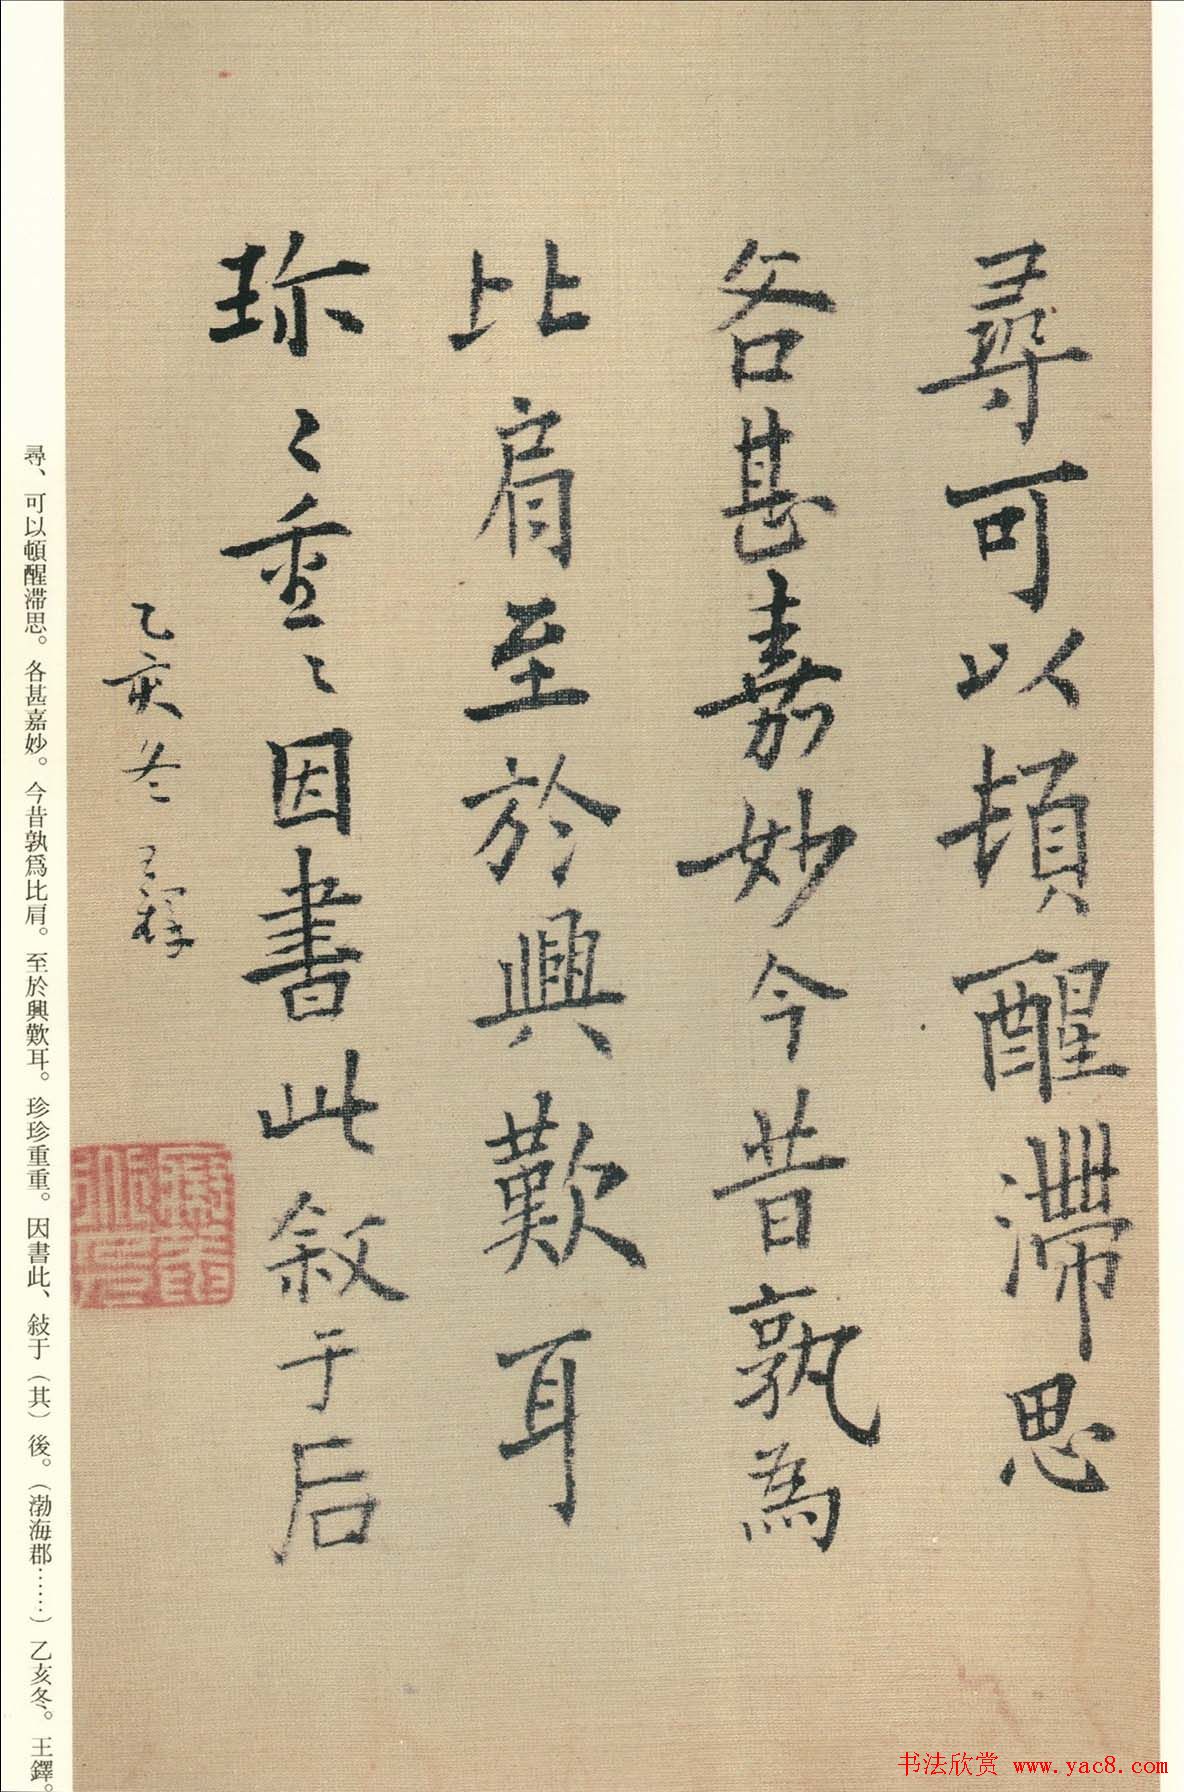 尋可以頓醒滯思
各甚嘉妙今昔孰為
比肩至於興歎耳
珎〻重〻因書此敘于后
乙亥冬 王鐸
尋、可以頓醒滯思。各甚嘉妙。今昔孰爲比肩。至於興歎耳。珍珍重重。因書此、敍于（其）後。（渤海郡……）乙亥冬。王鐸。
书法欣赏 www.yac8.com